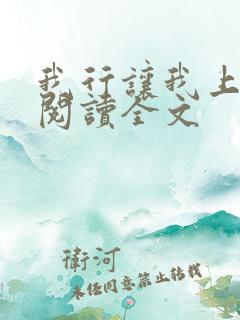 我行讓我上
閱讀全文
衛河
未經同意禁止轉載